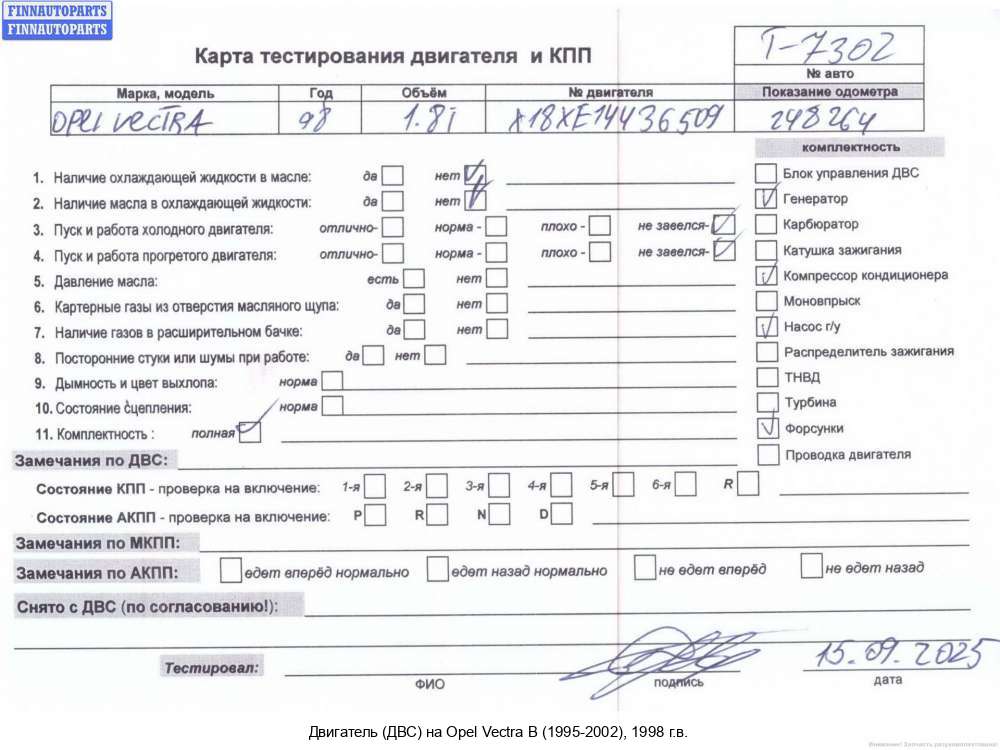 FINNAUTOPARTS
FINNAUTOPARTS
Карта тестирования двигателя и КПП
T-7302
№ авто
Марка, модель Год Объём № двигателя Показание одометра
OPEL VECTRA 98 1.8i X18XE14436509 248264
комплектность
1. Наличие охлаждающей жидкости в масле: да нет
2. Наличие масла в охлаждающей жидкости: да нет
3. Пуск и работа холодного двигателя: отлично- норма - плохо - не завелся-
4. Пуск и работа прогретого двигателя: отлично- норма - плохо - не завелся-
5. Давление масла: есть нет
6. Картерные газы из отверстия масляного щупа: да нет
7. Наличие газов в расширительном бачке: да нет
8. Посторонние стуки или шумы при работе: да нет
9. Дымность и цвет выхлопа: норма
10. Состояние сцепления: норма
11. Комплектность : полная
Блок управления ДВС
Генератор
Карбюратор
Катушка зажигания
Компрессор кондиционера
Моновпрыск
Насос г/у
Распределитель зажигания
ТНВД
Турбина
Форсунки
Проводка двигателя
Замечания по ДВС:
Состояние КПП - проверка на включение: 1-я 2-я 3-я 4-я 5-я 6-я R
Состояние АКПП - проверка на включение: P R N D
Замечания по МКПП:
Замечания по АКПП: едет вперёд нормально едет назад нормально не едет вперёд не едет назад
Снято с ДВС (по согласованию!):
15.09.2025
Тестировал:
ФИО подпись дата
Двигатель (ДВС) на Opel Vectra B (1995-2002), 1998 г.в.